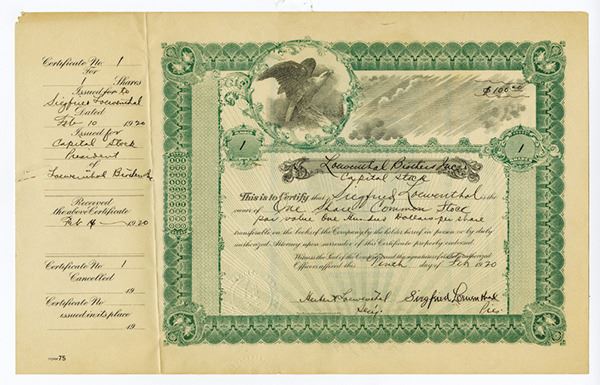 Certificate No. 1
For
1 Shares
Issued for to
Siegfried Loewenthal
Dated
Feb 10 1920
Issued for
Capital Stock
President
of
Loewenthal Brothers Inc
Received
the above Certificate
Feb 14 1920
Certificate No. 1
Cancelled
19
Certificate No.
issued in its place
19
FORM 75
$100.00
1
1
Loewenthal Brothers Inc.
Capital Stock
This is to Certify that Siegfried Loewenthal is the
owner of One Share Common Stock
par value One Hundred Dollars per share
transferable on the books of the Company by the holder hereof in person or by duly
authorized Attorney upon surrender of this Certificate properly endorsed.
Witness the Seal of the Company and the signatures of its duly authorized
Officers affixed this Tenth day of Feb 1920
Loewenthal
Secy.
Siegfried Loewenthal
Pres.